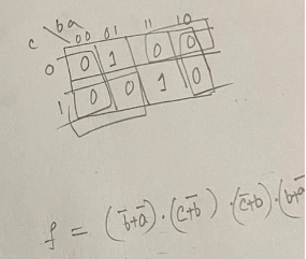 b a
c 00 01 11 10
0 0 1 0 0
1 0 0 1 0
f = (b̄+ā)·(c+b̄)·(c̄+b)·(b+a